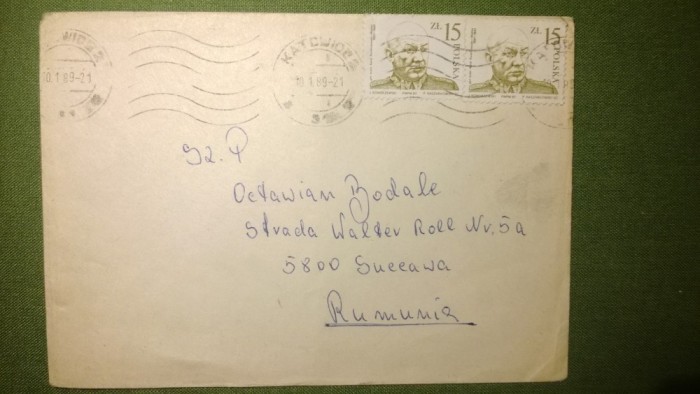 KATOWICE 2
10.1.89-21
ZŁ 15
POLSKA
ZŁ 15
POLSKA
Sz. P
Octawian Bodale
Strada Walter Roll Nr. 5a
5800 Succawa
Rumunia